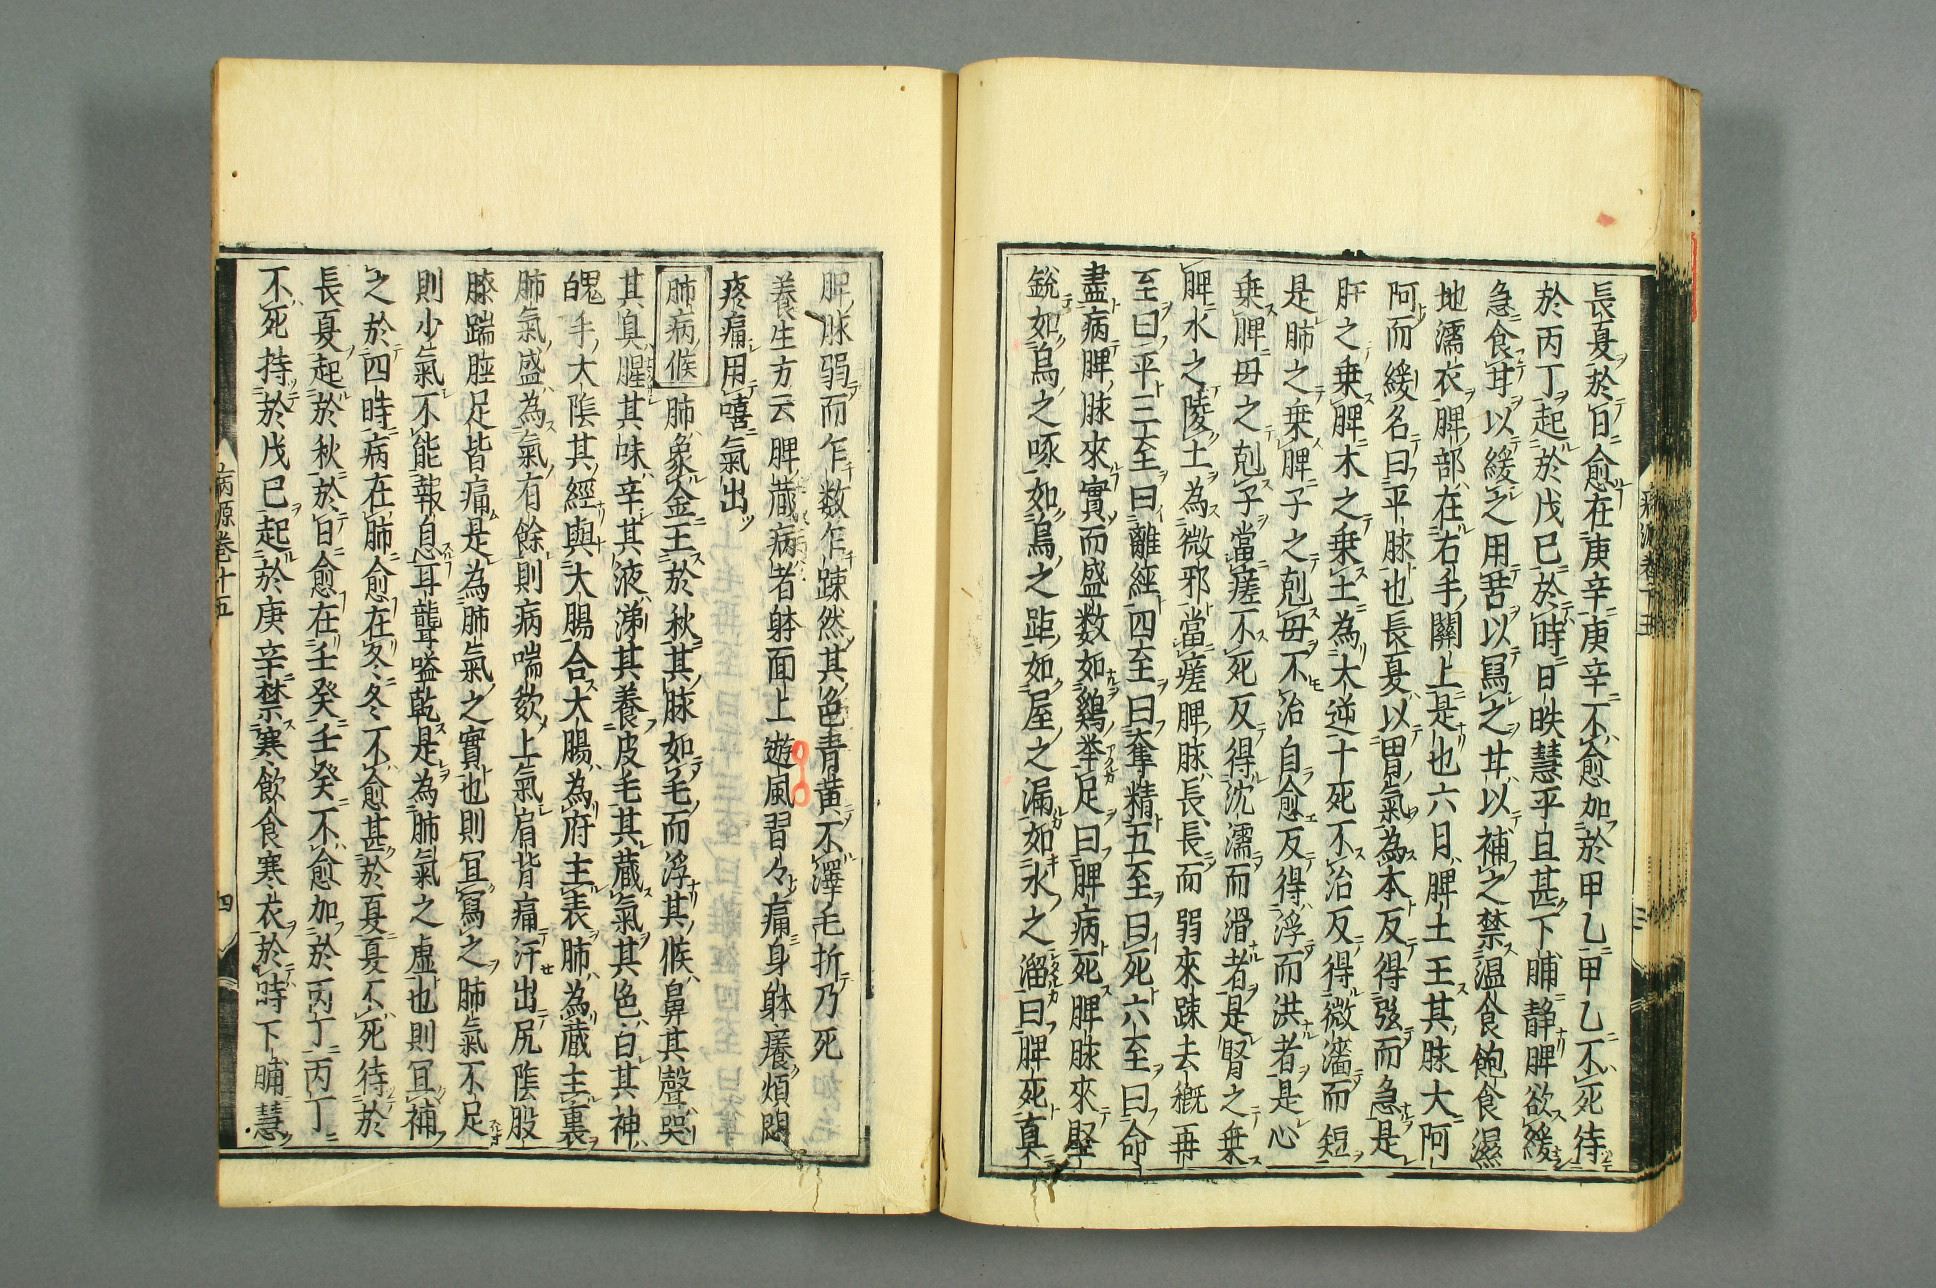 長夏於日愈在庚辛庚辛不愈加於甲乙甲乙不死待
於丙丁起於戊巳於時日昳慧乎旦甚下晡静脾欲緩
急食甘以緩之用苦以寫之甘以補之禁温食飽食濕
地濡衣脾部在右手關上是也六月脾土王其脉大阿
阿而緩名曰平脉也長夏以胃氣為本反得弦而急是
肝之乗脾木之乗土為大逆十死不治反得微濇而短
是肺之乗脾子之剋母不治自愈反得浮而洪者是心
乗脾母之剋子當瘥不死反得沈濡而滑者是腎之乗
脾水之陵土為微邪當瘥脾脉長長而弱來踈去穊再
至曰平三至曰離經四至曰奪精五至曰死六至曰命
盡病脾脉來實而盛数如鷄挙足曰脾病死脾脉來堅
銳如烏之啄如烏之距如屋之漏如水之溜曰脾死真
脾脉弱而乍数乍踈然其色青黄不澤毛折乃死
養生方云脾藏病者躰面上遊風習々痛身躰癢煩悶
疼痛用嘻氣出
肺病候 肺象金王於秋其脉如毛而浮其候鼻其聲哭
其臭腥其味辛其液涕其養皮毛其藏氣其色白其神
魄手大陰其經與大腸合大腸為府主表肺為藏主裏
肺氣盛為氣有餘則病喘欬上氣肩背痛汗出尻陰股
膝踹脛足皆痛是為肺氣之實也則冝寫之肺氣不足
則少氣不能報息耳聾嗌乾是為肺氣之虚也則冝補
之於四時病在肺愈在冬冬不愈甚於夏夏不死待於
長夏起於秋於日愈在壬癸壬癸不愈加於丙丁丙丁
不死持於戊巳起於庚辛禁寒飲食寒衣於時下晡慧
病源巻十五
四